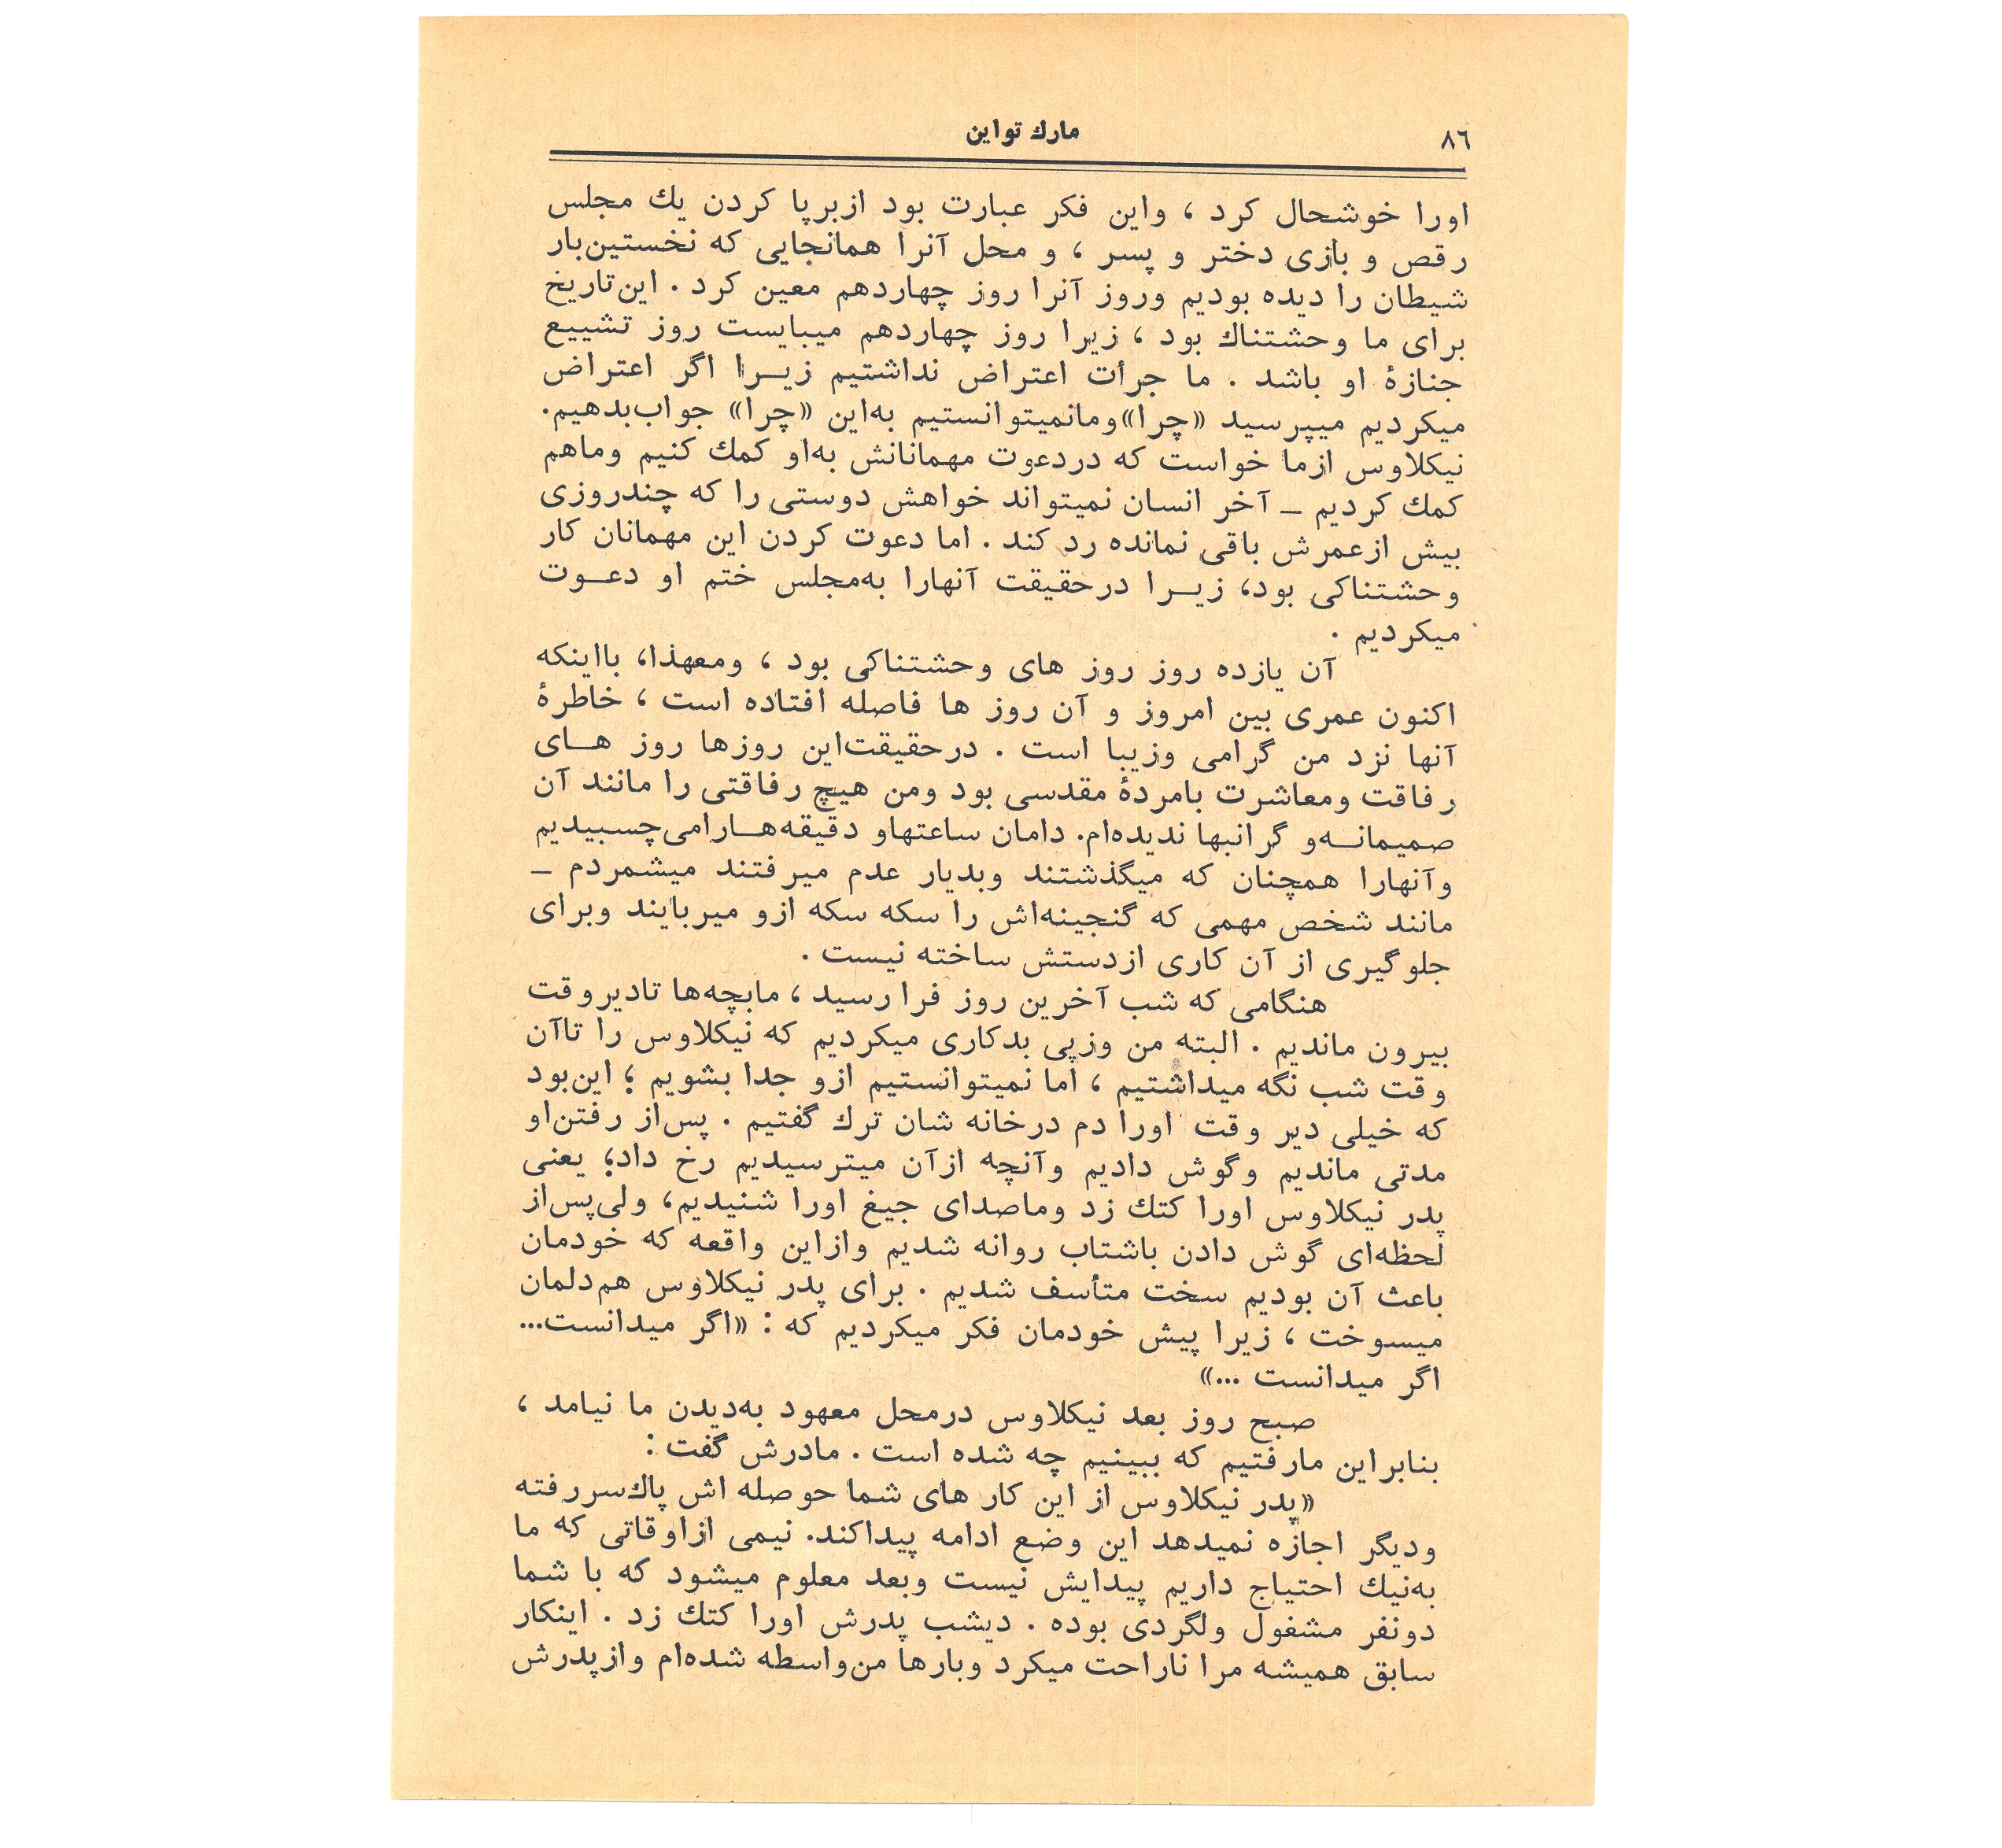 ۸٦
مارك تواین
اورا خوشحال کرد ، واین فکر عبارت بود ازبرپا کردن یك مجلس
رقص و بازی دختر و پسر ، و محل آنرا همانجایی که نخستین‌بار
شیطان را دیده بودیم وروز آنرا روز چهاردهم معین کرد . این‌تاریخ
برای ما وحشتناك بود ، زیرا روز چهاردهم میبایست روز تشییع
جنازهٔ او باشد . ما جرأت اعتراض نداشتیم زیــرا اگر اعتراض
میکردیم میپرسید «چرا»ومانمیتوانستیم به‌این «چرا» جواب‌بدهیم.
نیکلاوس ازما خواست که دردعوت مهمانانش به‌او کمك کنیم وماهم
کمك کردیم ــ آخر انسان نمیتواند خواهش دوستی را که چندروزی
بیش ازعمرش باقی نمانده رد کند . اما دعوت کردن این مهمانان کار
وحشتناکی بود، زیــرا درحقیقت آنهارا به‌مجلس ختم او دعــوت
میکردیم .
آن یازده روز روز های وحشتناکی بود ، ومعهذا، بااینکه
اکنون عمری بین امروز و آن روز ها فاصله افتاده است ، خاطرهٔ
آنها نزد من گرامی وزیبا است . درحقیقت‌این روزها روز هــای
رفاقت ومعاشرت بامردهٔ مقدسی بود ومن هیچ رفاقتی را مانند آن
صمیمانــه‌و گرانبها ندیده‌ام. دامان ساعتهاو دقیقه‌هــارامی‌چسبیدیم
وآنهارا همچنان که میگذشتند وبدیار عدم میرفتند میشمردم ــ
مانند شخص مهمی که گنجینه‌اش را سکه سکه ازو میربایند وبرای
جلوگیری از آن کاری ازدستش ساخته نیست .
هنگامی که شب آخرین روز فرا رسید ، مابچه‌ها تادیروقت
بیرون ماندیم . البته من وزپی بدکاری میکردیم که نیکلاوس را تاآن
وقت شب نگه میداشتیم ، اما نمیتوانستیم ازو جدا بشویم ؛ این‌بود
که خیلی دیر وقت اورا دم درخانه شان ترك گفتیم . پس‌از رفتن‌او
مدتی ماندیم وگوش دادیم وآنچه ازآن میترسیدیم رخ داد؛ یعنی
پدر نیکلاوس اورا کتك زد وماصدای جیغ اورا شنیدیم، ولی‌پس‌از
لحظه‌ای گوش دادن باشتاب روانه شدیم وازاین واقعه که خودمان
باعث آن بودیم سخت متأسف شدیم . برای پدر نیکلاوس هم‌دلمان
میسوخت ، زیرا پیش خودمان فکر میکردیم که : «اگر میدانست...
اگر میدانست ...»
صبح روز بعد نیکلاوس درمحل معهود به‌دیدن ما نیامد ،
بنابراین مارفتیم که ببینیم چه شده است . مادرش گفت :
«پدر نیکلاوس از این کار های شما حوصله اش پاك‌سررفته
ودیگر اجازه نمیدهد این وضع ادامه پیداکند. نیمی ازاوقاتی که ما
به‌نیك احتیاج داریم پیدایش نیست وبعد معلوم میشود که با شما
دونفر مشغول ولگردی بوده . دیشب پدرش اورا کتك زد . اینکار
سابق همیشه مرا ناراحت میکرد وبارها من‌واسطه شده‌ام وازپدرش